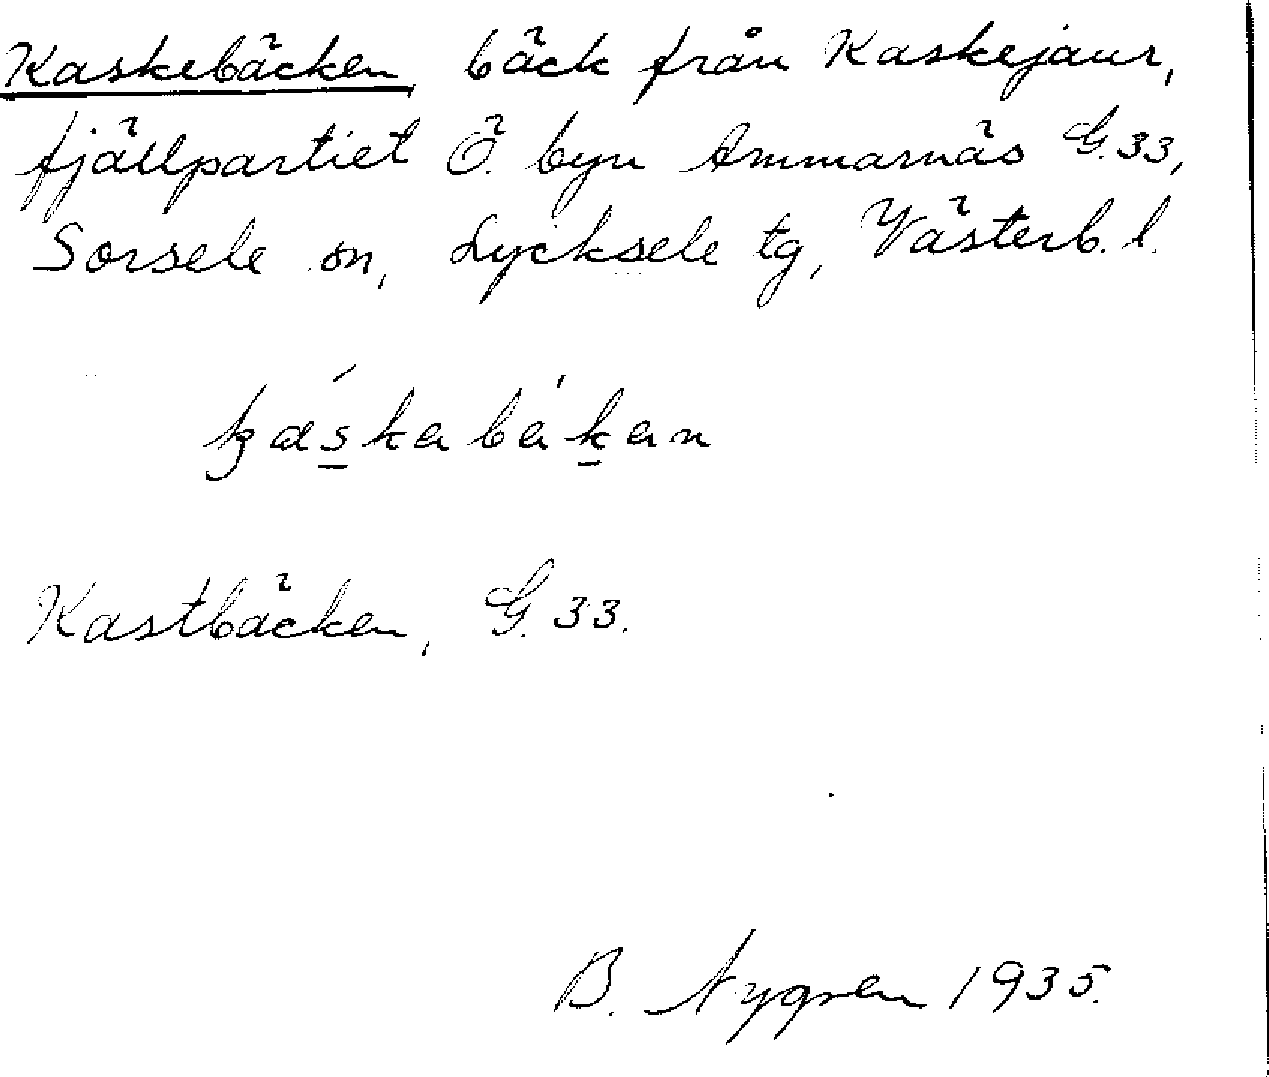 Kaskebäcken, bäck från Kaskejaur,
fjällpartiet Ö. byn Ammarnäs G.33,
Sorsele sn, Lycksele tg, Västerb. l.
Kastbäcken, G. 33.
B. Nygren 1935.